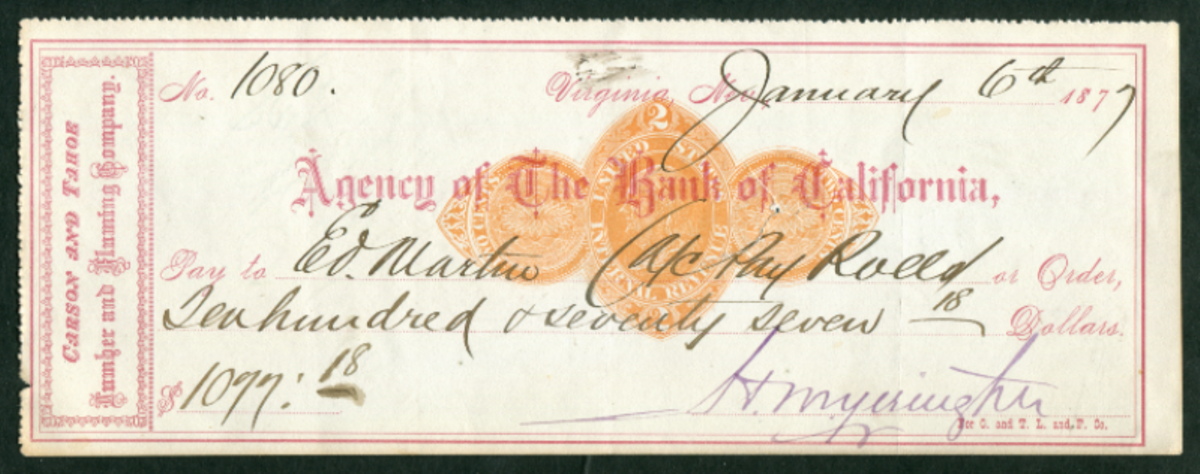 CARSON AND TAHOE
Lumber and Fluming Company.
No. 1080.
Virginia, Nev. January 6th 1877
2
UNITED STATES
INTERNAL REVENUE
Agency of The Bank of California,
Pay to Ed. Martin (a/c Pay Rolls) or Order,
Ten hundred & seventy seven 18 Dollars.
$ 1077: 18
H. M. Yerington
For C. and T. L. and F. Co.